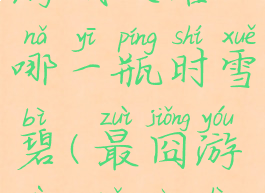 nǎ yī píng shí xuě
哪一瓶时雪
bì zuì jiǒng yóu
碧(最囧游